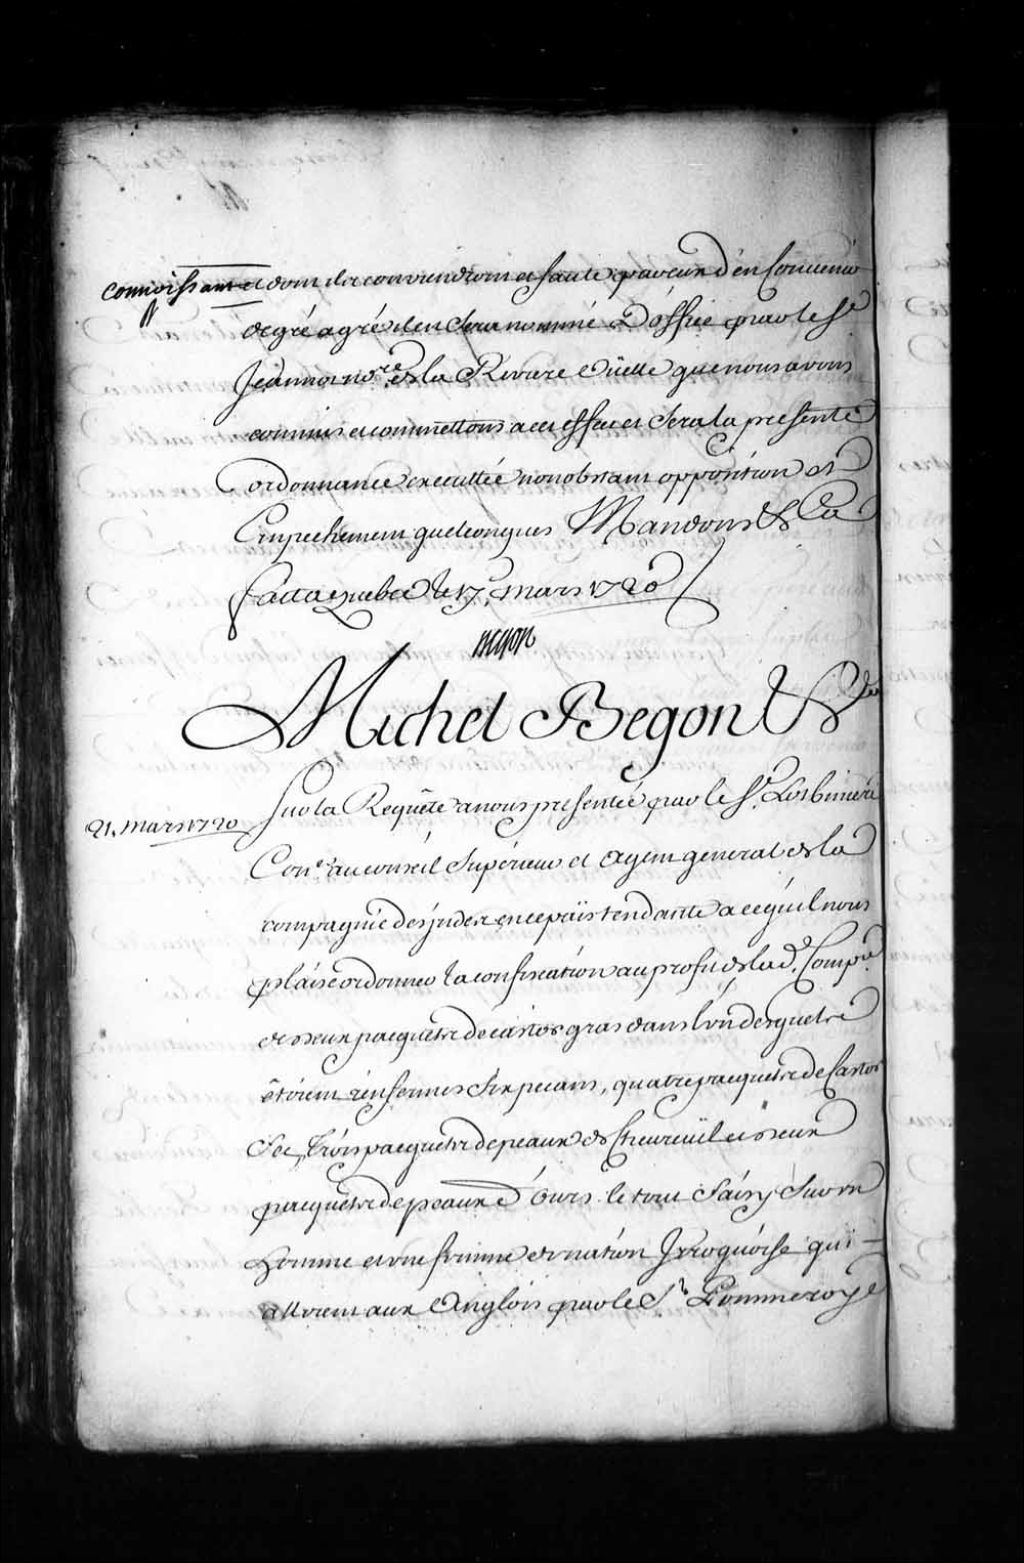 connoissans et dont ils conviendront et faute par eux d'en convenir
de gré agré il en sera nommé D'office par le Sr
Jeannot nore. de la Riviere Oüelle que nous avons
commis et commettons a cet effet et sera la presente
ordonnance executtée nonobstant opposition et
Empechemens quelconques Mandons &a
fait a quebec le 17e. mars 1720
Begon
Michel Begon &a
21. mars 1720
Sur la Requête a nous presentée par le Sr. Lotbiniere
Coner. au conseil Supérieur et Agent general de la
compagnie des jndes en ce païs tendante a ce qu'il nous
plaise ordonner la confiscation au profit de la de. Compie.
de deux pacquets de castor gras dans l'un desquels
étoient renfermés Six pecans, quatre pacquets de Castor
Sec, trois pacquets de peaux de Chevreüil et deux
pacquets de peaux d'Ours le tout Saisy Sur un
homme et une femme de nation Jroquoise qui
alloient aux Anglois par le Sr. Pommeroye